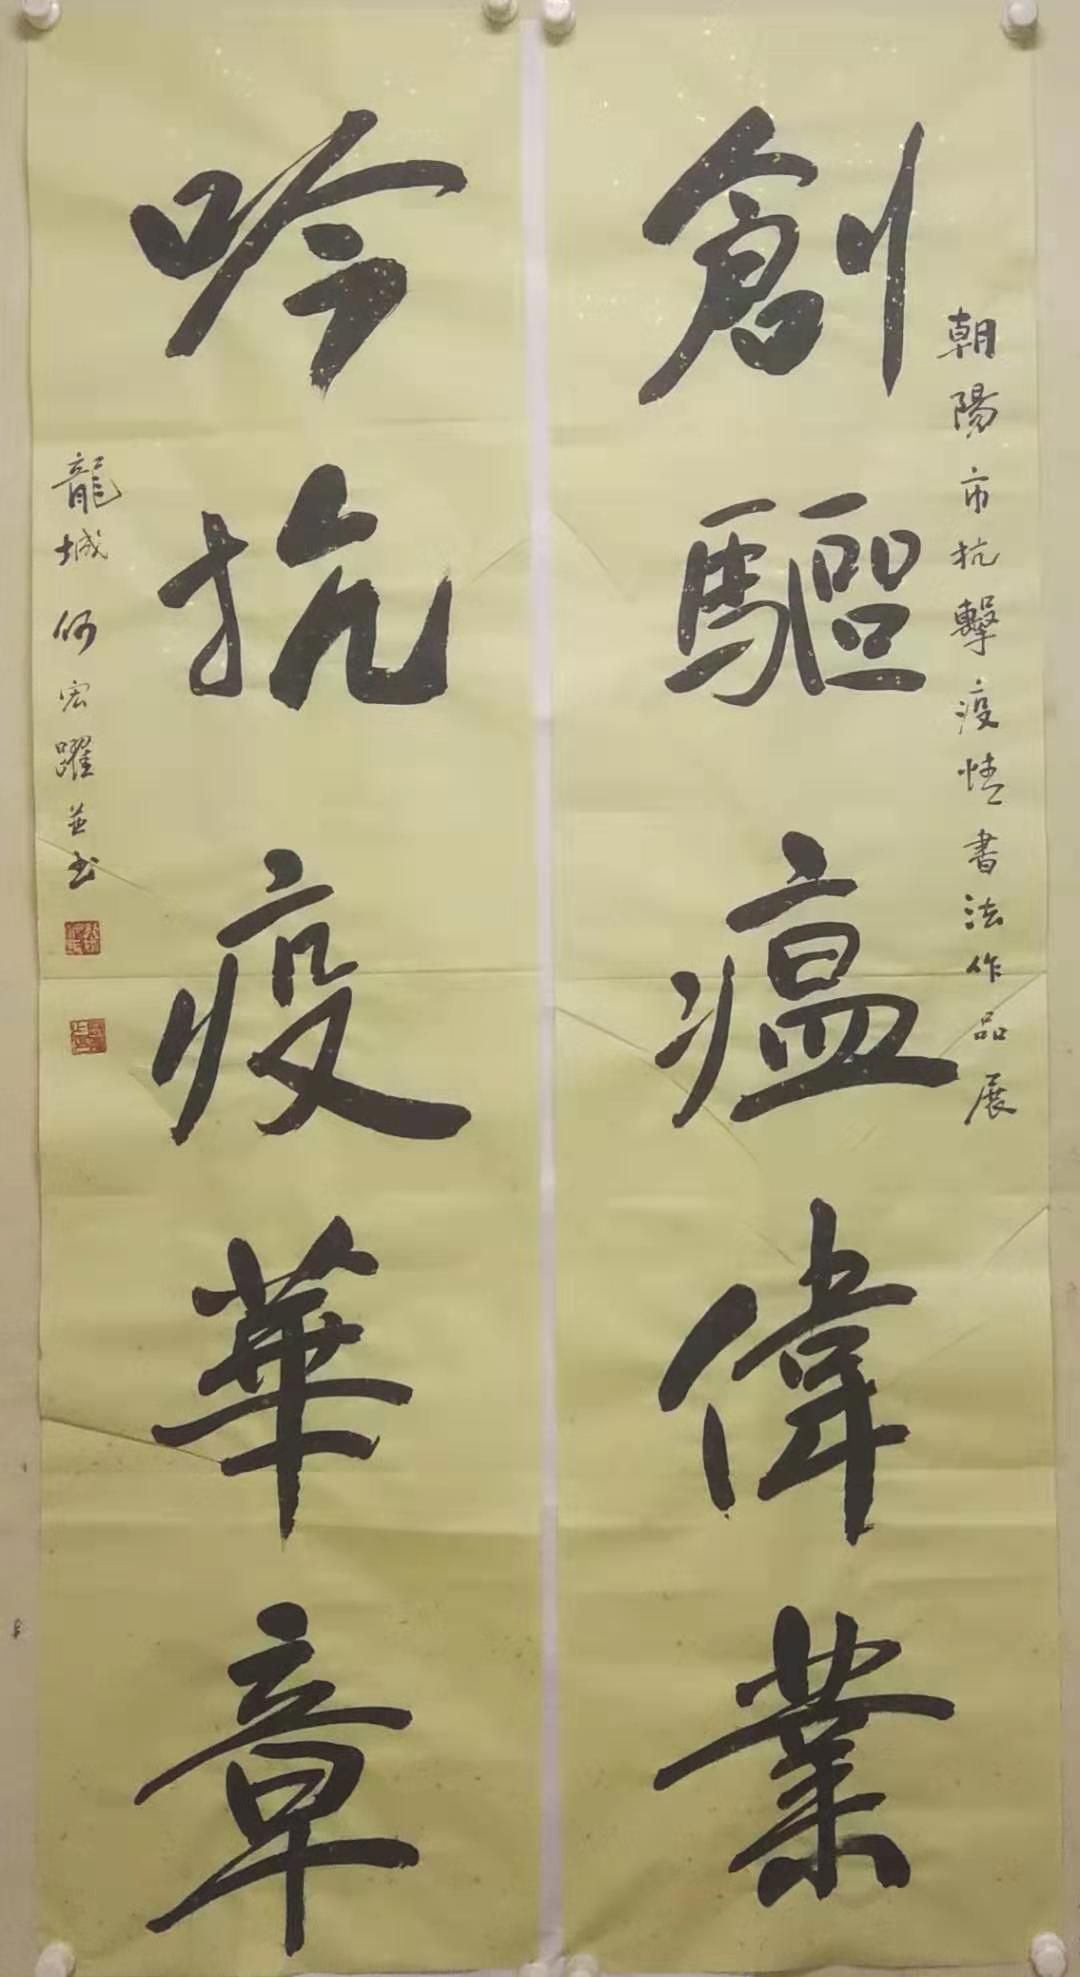 朝陽市抗擊疫情書法作品展
創驅瘟偉業
吟抗疫華章
龍城何宏躍並書